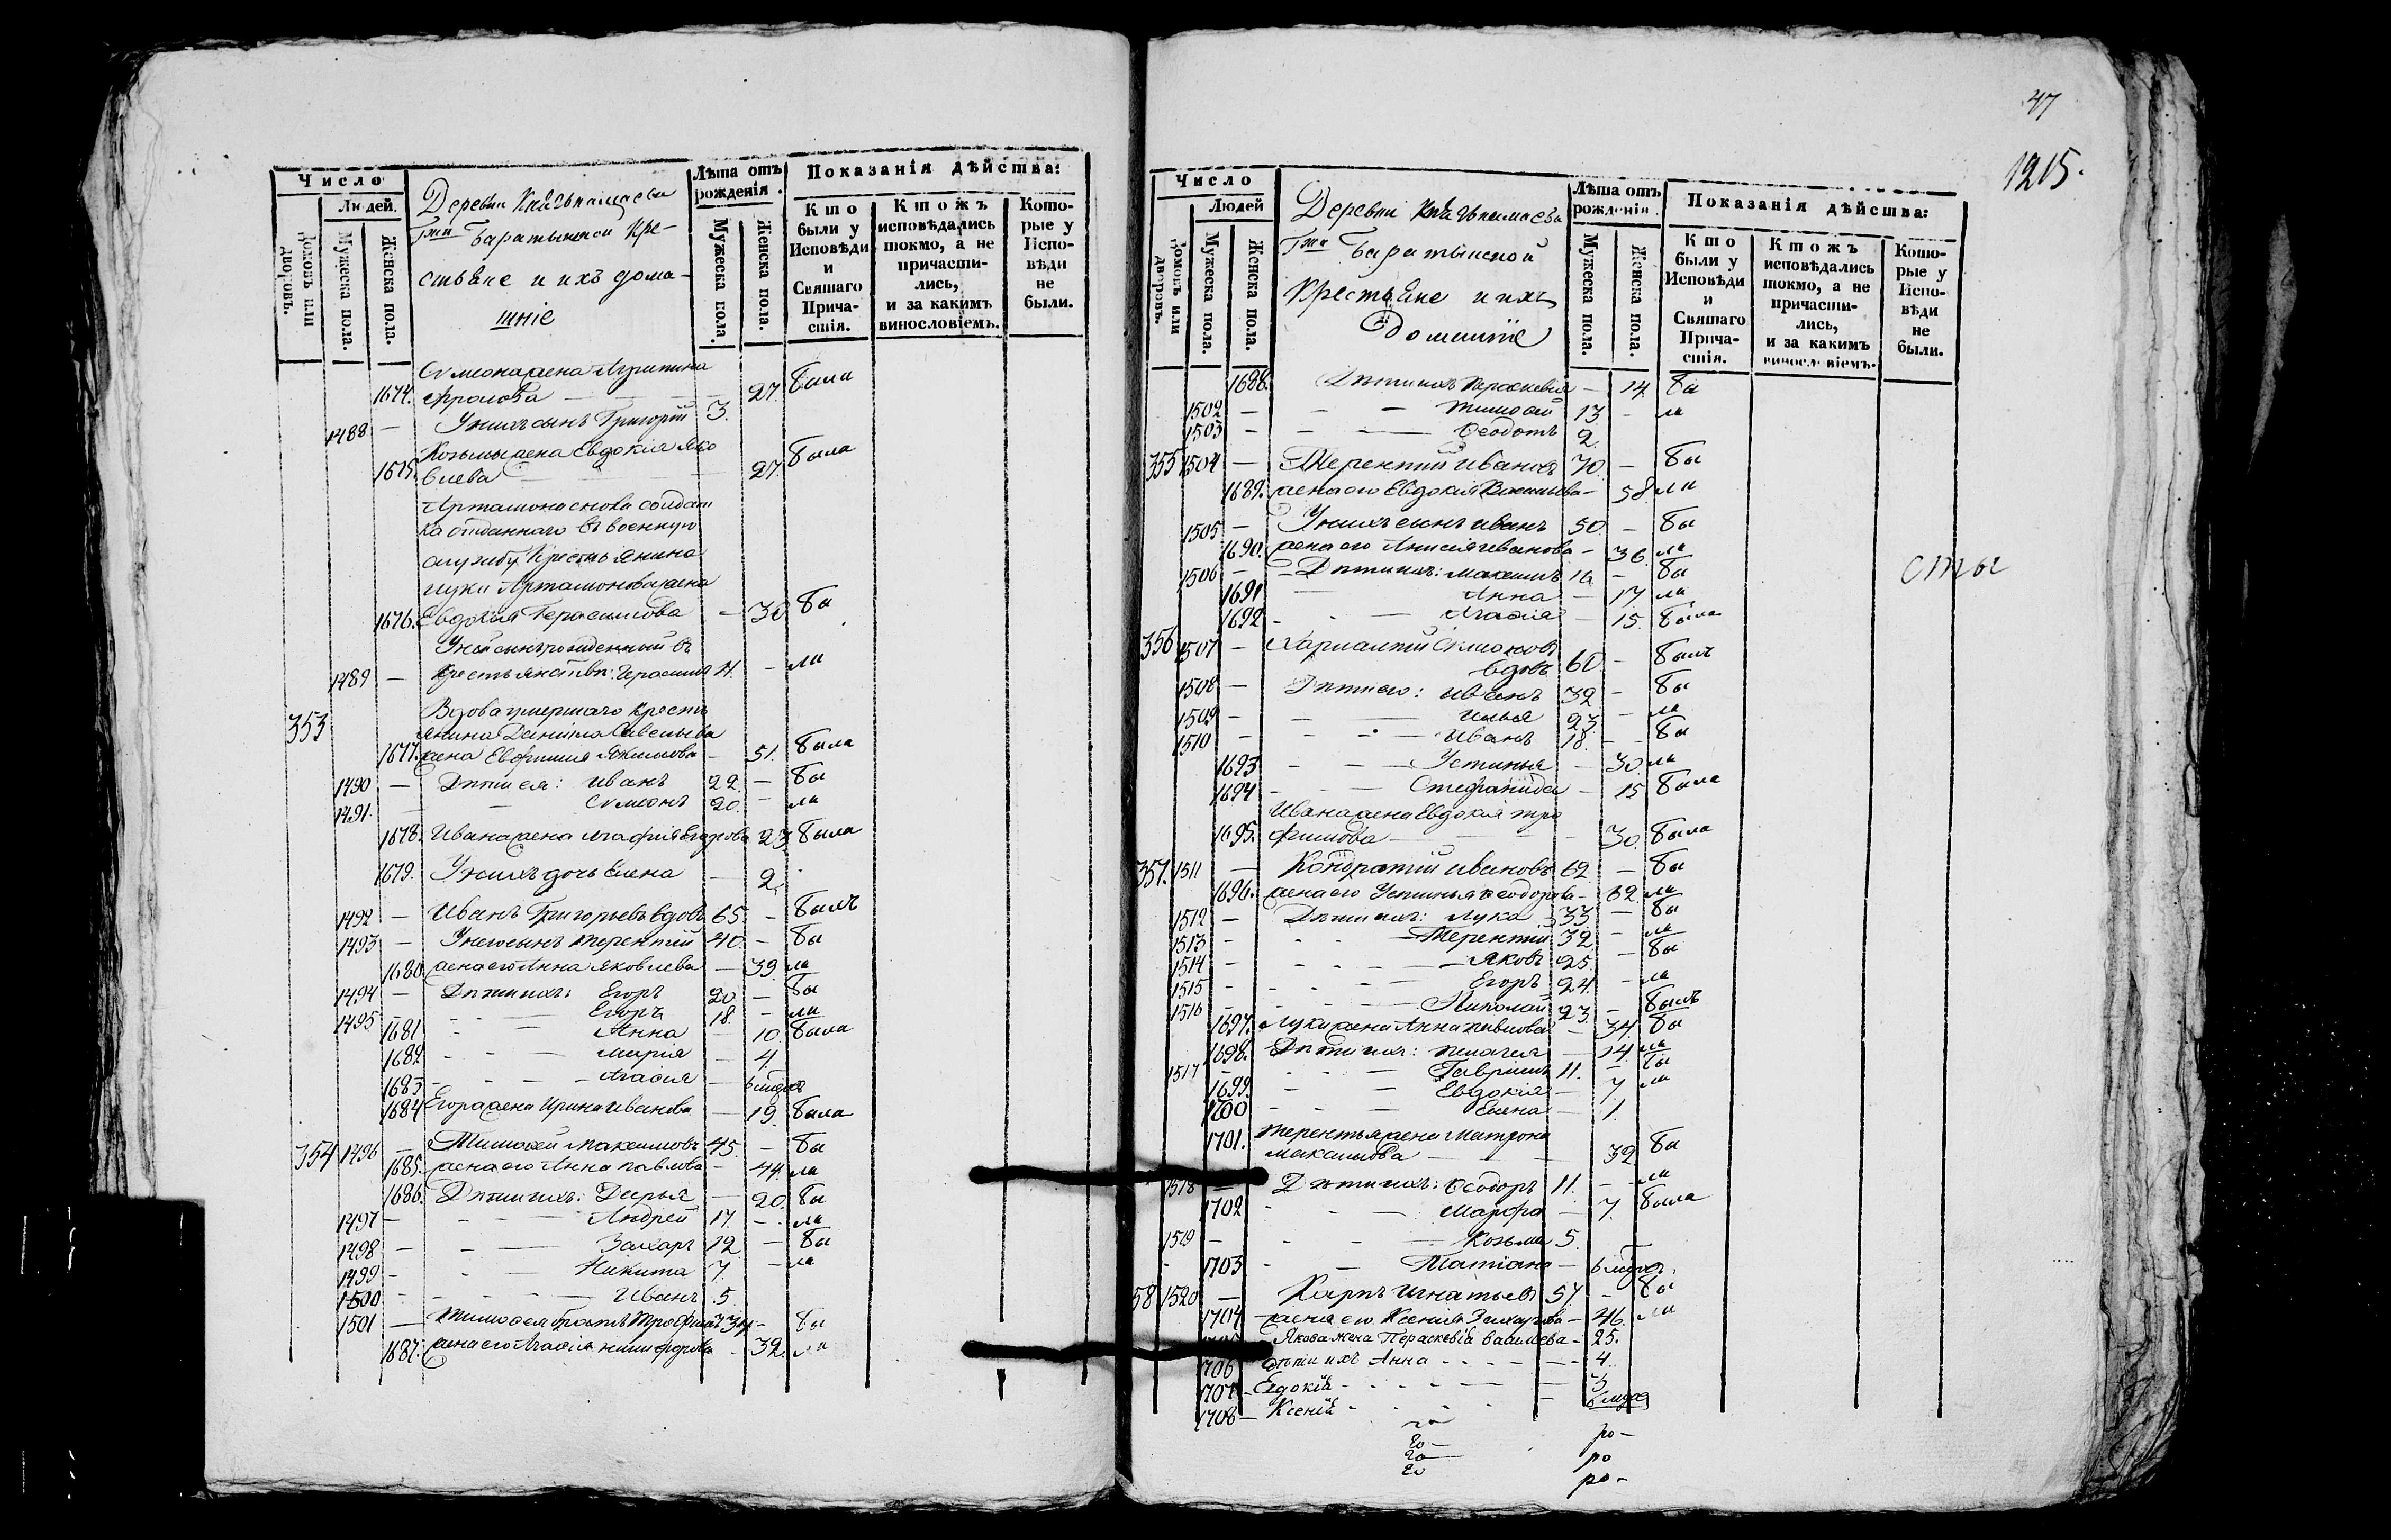 Число
Людей.
Домовъ или дворовъ.
Мужеска пола.
Женска пола.
Деревни
Гжи Баратынской Кре-
стьяне и ихъ дома-
шніе
Лѣта отъ рожденія.
Мужеска пола.
Женска пола.
Показанія дѣйства:
Кто были у Исповѣди и Святаго Причастія.
Ктожъ исповѣдались токмо, а не причастились, и за какимъ винословіемъ.
Которые у Исповѣди не были.
Сѵмеона жена Агрипина
1674. Фролова — 27. была
1488 — У нихъ сынъ Григорій 3.
Козьмы жена Евдокія Яко
1675. влева — 27. была
отданнаго въ военную
службу Крестьянина
Луки Артамонова жена
1676. Евдокія Герасимова — 30 бы
У ней сынъ рожденный въ
1489 — крестьянствѣ: Герасимъ 11. — ли
353 Вдова умершаго кресть
янина Даніила Савельева
1677. жена Евфимія Якимова — 51. была
1490 — Дѣти ея: Иванъ 22. — бы
1491. — Сѵмеонъ 20. — ли
1678. Ивана жена Агафія 23. была
1679. У нихъ дочь Елена — 2.
1492 — Иванъ Григорьевъ вдовъ 65. — былъ
1493 — У него сынъ Терентій 40. — бы
1680 жена его Анна Яковлева — 39 ли
1494 — Дѣти ихъ: Егоръ 20 — бы
1495 — Егоръ 18. — ли
1681 — Анна — 10. была
1682. — Марія — 4.
1683 — Агафія —
1684 Егора жена Ирина Иванова — 19. была
354 1496 — Тимофей Максимовъ 45. — бы
1685. жена его Анна Павлова — 44. ли
1686. Дѣти ихъ: Дарья — 20. бы
1497 — Андрей 17. — ли
1498 — Захаръ 12. — бы
1499 — Никита 7. — ли
1500 — Иванъ 5.
1501 — Тимофея братъ Трофимъ 34 — бы
1687. жена его Агафія Никифорова — 32. ли
47
1215.
Число
Людей
Домовъ или дворовъ.
Мужеска пола.
Женска пола.
Деревни
Гжи Баратынской
Крестьяне и ихъ
домашніе
Лѣта отъ рожденія.
Мужеска пола.
Женска пола.
Показанія дѣйства:
Кто были у Исповѣди и Святаго Причастія.
Ктожъ исповѣдались токмо, а не причастились, и за какимъ винословіемъ.
Которые у Исповѣди не были.
1688. Дѣти ихъ Параскевія — 14. бы
1502 — Тимофей 13 — ли
1503 — Ѳеодотъ 2.
355 1504 — Терентій Ивановъ 70. — бы
1689. жена его Евдокія — 58 ли
1505 — У нихъ сынъ Иванъ 50. — бы
1690. жена его Анисія Иванова — 36. ли
1506 — Дѣти ихъ: Максимъ — бы
сты
1691 — Анна — 17 ли
1692 — Агафія — 15. была
356 1507 — Харлампій Сѵмеоновъ
вдовъ 60. — былъ
1508 — Дѣти его: Иванъ 32 — бы
1509 — Илья 23. — ли
1510 — Иванъ 18. — бы
1693 — Устинья — 30. ли
1694 — Стефанида — 15 была
Ивана жена Евдокія Тро
1695. фимова — 30. была
357. 1511 — Кондратій Ивановъ 62 — бы
1696. жена его Устинья Ѳеодорова — 62. ли
1512 — Дѣти ихъ: Лука 33 — бы
1513 — Терентій 32. — ли
1514 — Яковъ 25. — бы
1515 — Егоръ 24. — ли
1516 — Николай 23. — былъ
1697. Луки жена Анна Павлова — 34. бы
1698. Дѣти ихъ: Пелагея — 14. ли
1517 — Гавріилъ 11. — бы
1699. — Евдокія — 7. ли
1700 — Елена — 1.
1701. Терентья жена Матрона
Максимова — 32. бы
1518 — Дѣти ихъ: Ѳеодоръ 11. — ли
1702 — Марфа — 7. была
1519 — Козьма 5.
1703 — Татіана —
58 1520 — Карпъ Игнатьевъ 57 — бы
1704 жена его Ксенія Захарова — 46. ли
Якова жена Пераскевіа Василева — 25.
706 Дѣти ихъ Анна — 4.
1707 Евдокія — 3
1708 — Ксенія —
го ро-
го ро
го ро-